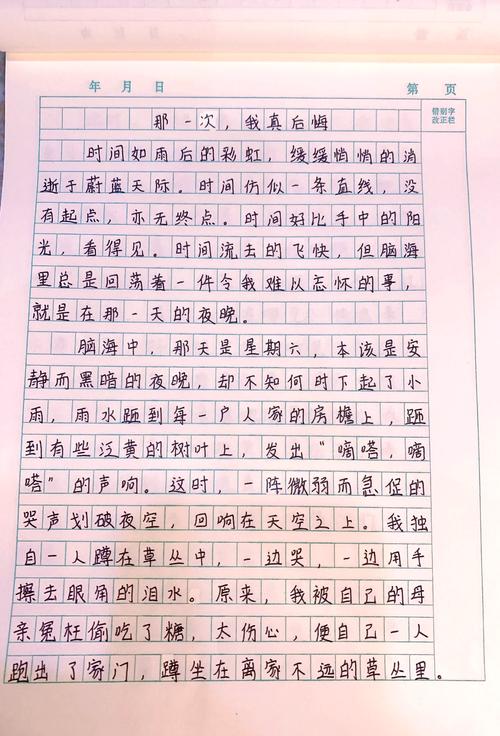 年 月 日 第 页
错别字
改正栏
那一次，我真后悔
时间如雨后的彩虹，缓缓悄悄的消
逝于蔚蓝天际。时间仿似一条直线，没
有起点，亦无终点。时间好比手中的阳
光，看得见。时间流去的飞快，但脑海
里总是回荡着一件令我难以忘怀的事，
就是在那一天的夜晚。
脑海中，那天是星期六，本该是安
静而黑暗的夜晚，却不知何时下起了小
雨，雨水砸到每一户人家的房檐上，砸
到有些泛黄的树叶上，发出“嘀嗒，嘀
嗒”的声响。这时，一阵微弱而急促的
哭声划破夜空，回响在天空之上。我独
自一人蹲在草丛中，一边哭，一边用手
擦去眼角的泪水。原来，我被自己的母
亲冤枉偷吃了糖，太伤心，便自己一人
跑出了家门，蹲坐在离家不远的草丛里。